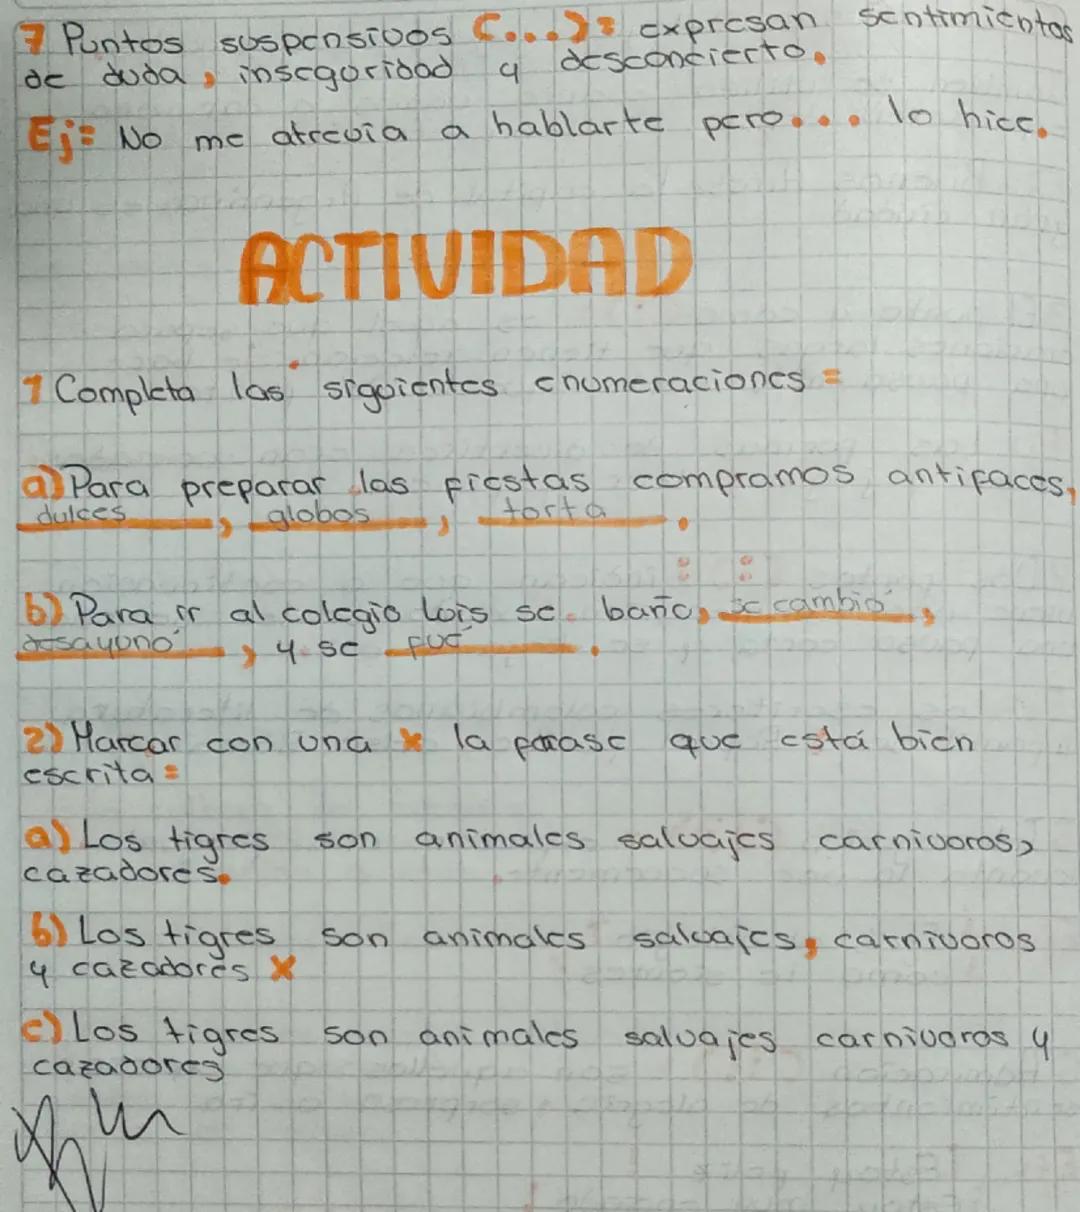 7 Puntos suspensivos (...): expresan sentimientos
de duda, inseguridad y desconcierto.
Ej: No me atrevia a hablarte pero... lo hice.
ACTIVIDAD
1 Completa las siguientes enumeraciones:
a) Para preparar las fiestas compramos antifaces,
dulces, globos, torta.
b) Para ir al colegio Luis se bañe, se cambió,
desayunó, y se fué.
2) Marcar con una x la frase que está bien
escrita:
a) Los tigres son animales salvajes carnivoros,
cazadores.
b) Los tigres son animales salvajes, carnivoros
y cazadores x
c) Los tigres son animales salvajes carnivoros y
cazadores